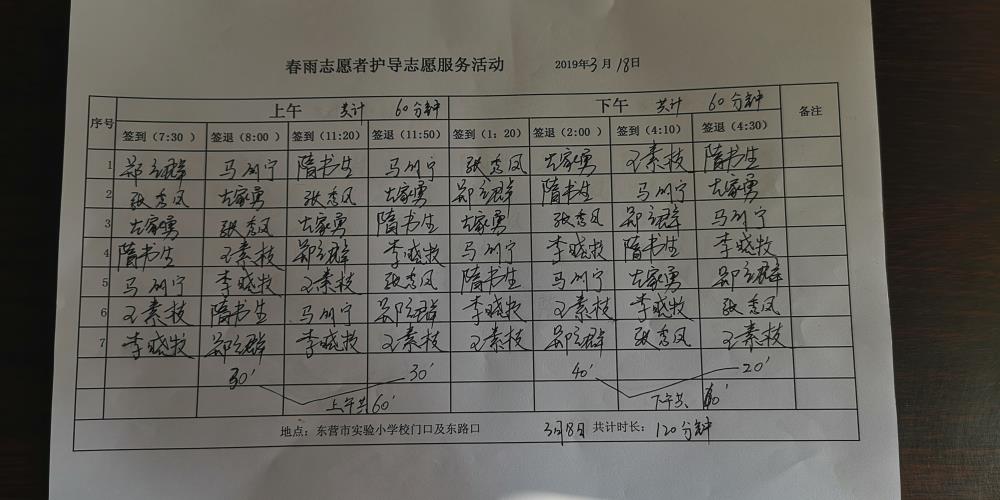 春雨志愿者护导志愿服务活动 2019年3月18日
序号 上午 共计 60分钟 下午 共计 60分钟 备注
签到(7:30 ) 签退(8:00 ) 签到(11:20) 签退(11:50) 签到(1: 20) 签退(2:00 ) 签到(4:10) 签退(4:30)
1 郑立群 马列宁 隋书生 马列宁 张秀凤 左家勇 王素枝 隋书生
2 张秀凤 左家勇 张秀凤 左家勇 郑立群 隋书生 马列宁 左家勇
3 左家勇 张秀凤 左家勇 隋书生 左家勇 张秀凤 郑立群 马列宁
4 隋书生 王素枝 郑立群 李晓牧 马列宁 李晓牧 隋书生 李晓牧
5 马列宁 李晓牧 王素枝 张秀凤 隋书生 马列宁 左家勇 郑立群
6 王素枝 隋书生 马列宁 郑立群 李晓牧 王素枝 李晓牧 张秀凤
7 李晓牧 郑立群 李晓牧 王素枝 王素枝 郑立群 张秀凤 王素枝
30′ 30′ 40′ 20′
上午共60′ 下午共60′
地点: 东营市实验小学校门口及东路口 3月8日 共计时长: 120分钟